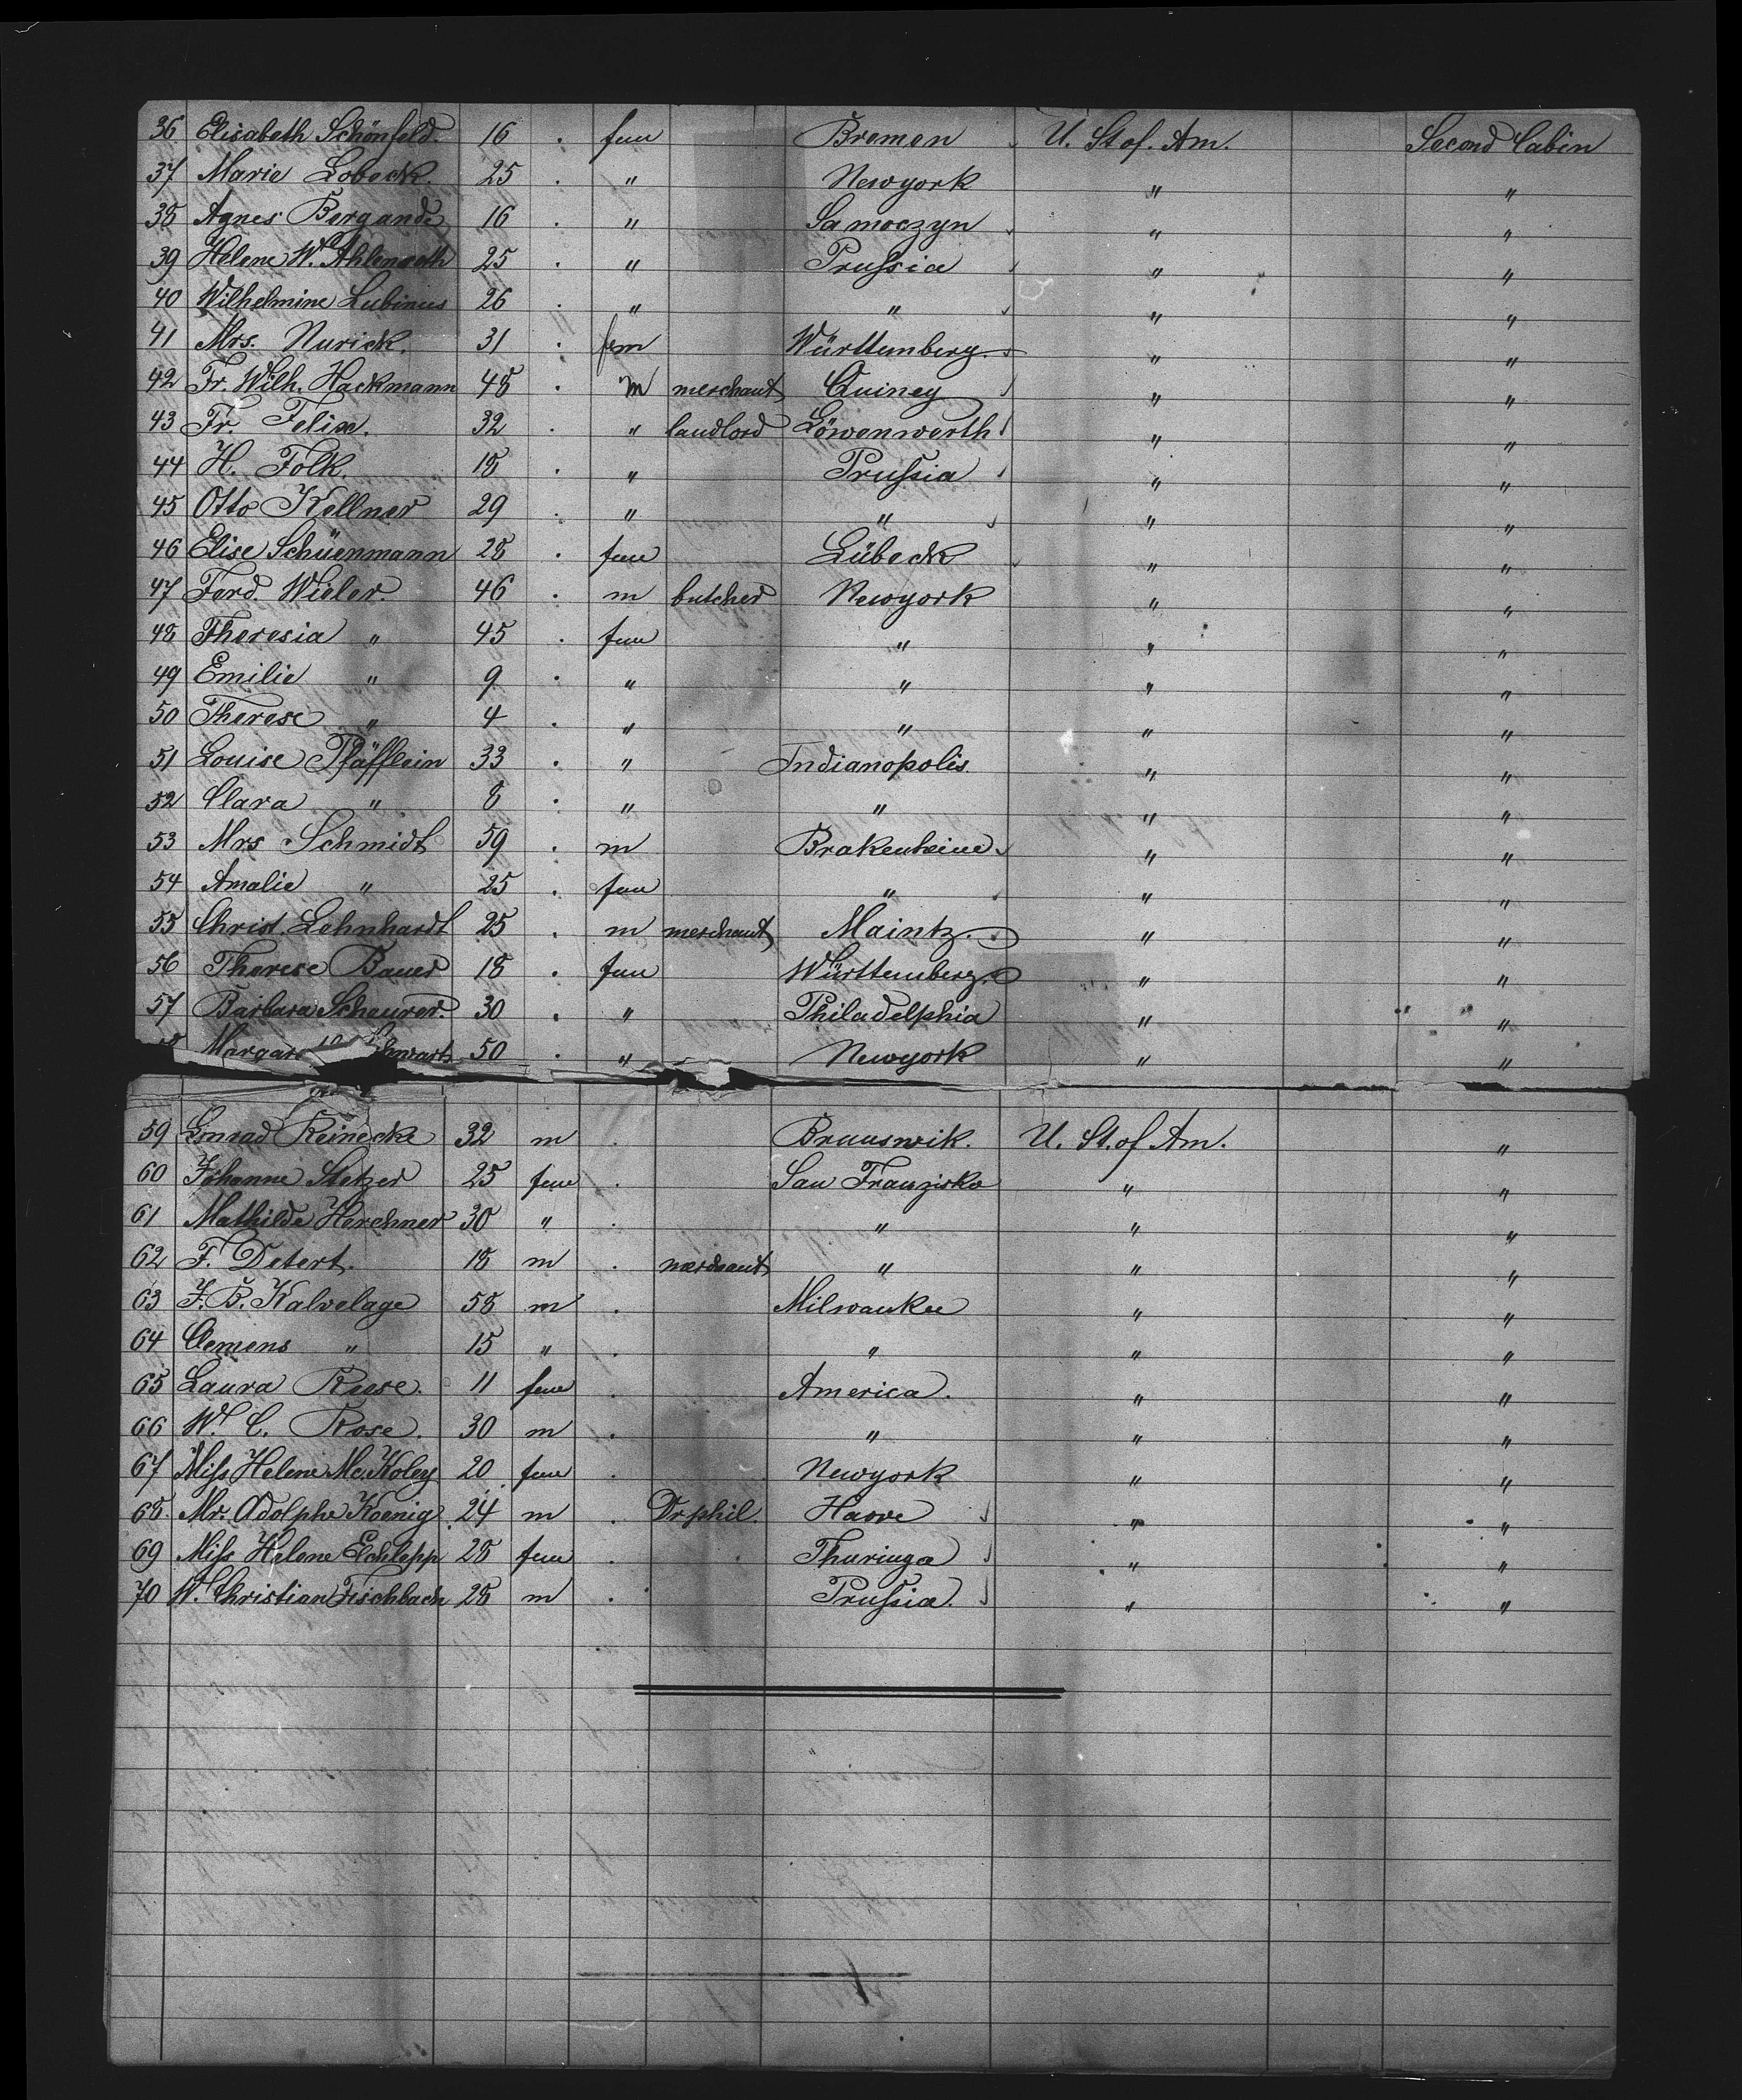 36 Elisabeth Schönfeld. 16 fem Bremen U. St of. Am. Second Cabin
37 Marie Lobeck 25 " Newyork " "
38 Agnes Bergande 16 " Samoczyn " "
39 Helene W. Ahlenroth 25 " Prussia " "
40 Wilhelmine Lubinus 26 " " " "
41 Mrs. Nurick. 31 fem Württemberg. " "
42 Fr. Wilh. Hackmann 48 m merchant Quincy " "
43 Fr. Felix. 32 " landlord Löwenwerth " "
44 H. Folk 18 " Prussia " "
45 Otto Kellner 29 " " " "
46 Elise Schüenmann 28 fem Lübeck " "
47 Ferd. Wieler. 46 m butcher Newyork " "
48 Theresia " 45 fem " " "
49 Emilie " 9 " " " "
50 Therese " 4 " " " "
51 Louise Pfäfflein 33 " Indianopolis. " "
52 Clara " 8 " " " "
53 Mrs Schmidt 59 m " "
54 Amalie " 25 fem " " "
55 Christ. Lehnhardt 25 m merchant Maintz. " "
56 Therese Bauer 18 fem Württemberg. " "
57 Barbara Scheurer. 30 " Philadelphia " "
50 " Newyork " "
59 Reinecke 32 m Braunswik. U. St. of Am. "
60 Johanne Stetzer 25 fem San Franzisko " "
61 Mathilde Herchner 30 " " " "
62 F. Detert. 18 m merchant " " "
63 J. B. Kalvelage 58 m Milwaukee " "
64 Clemens " 15 " " " "
65 Laura Reese. 11 fem America. " "
66 W. C. Rose. 30 m " " "
67 Miss Helene Mc. Koley 20 fem Newyork " "
68. Mr. Adolphe Koenig 24 m Dr phil. Havre " "
69 Miss Helene 28 fem Thuringa " "
70 W. Christian Fischbach 28 m Prussia. " "